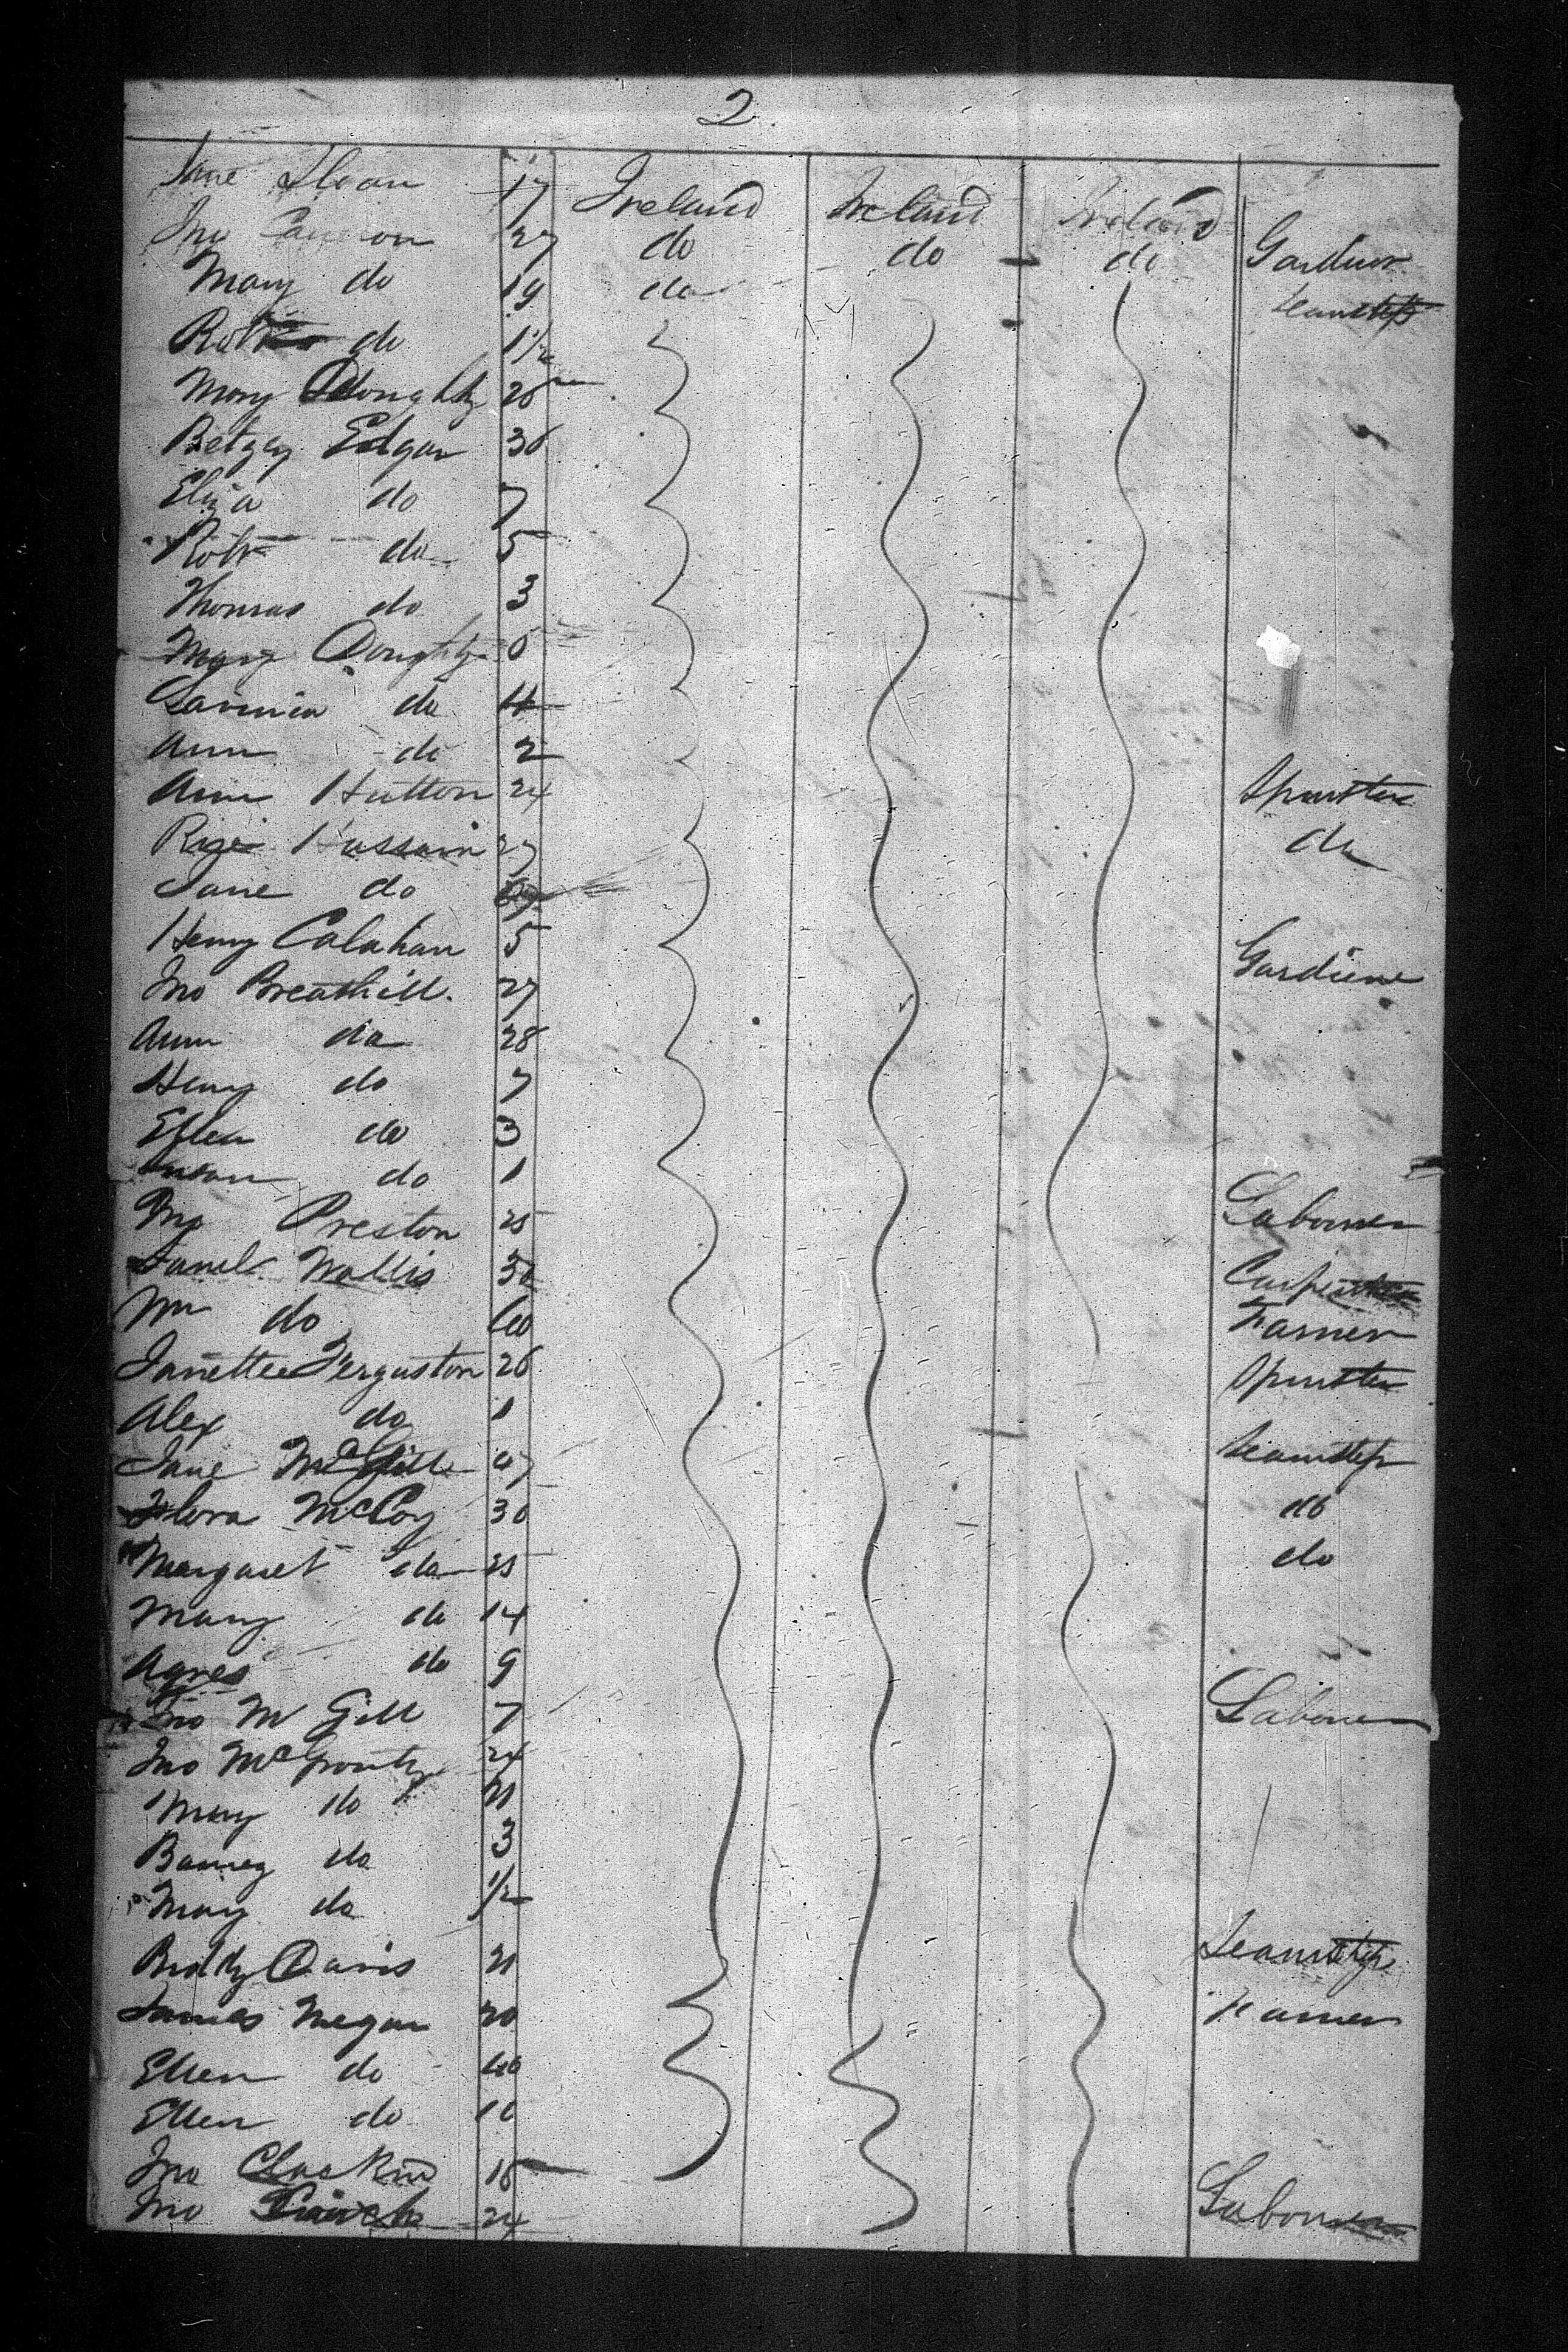 2
Jane Sloan 17 Ireland Ireland Ireland
Jno Cameron 27 do do do Gardner
Mary do 19 do Seamstress
Robt do 1½
Mary Doughty 26
Betzey Edgar 36
Eliza do 7
Robt do 5
Thomas do 3
Mary Doughty 6
Lavinia do 4
Ann do 2
Ann Hutton 24 Spinster
Rose 27 do
Jane do
Henry Calahan 5
Jno Breathill 27 Gardiene
Ann do 28
Henry do 7
Ellen do 3
Susan do 1
Jno Preston 25 Labourer
Saml Wallis 30 Carpenter
Wm do 60 Farmer
Janettee Ferguston 26 Spinster
Alex do 1
Jane McGill 47 Seamstress
Flora McCoy 30 do
Margaret do 25 do
Mary do 14
Agnes do 9
Jno McGill 7 Labourer
Jno 24
Mary do 21
Barney do 3
Mary do ½
Biddy Davis 21 Seamstress
James Megan 20 Farmer
Ellen do 40
Ellen do 10
Jno 16
Jno 24 Labourer